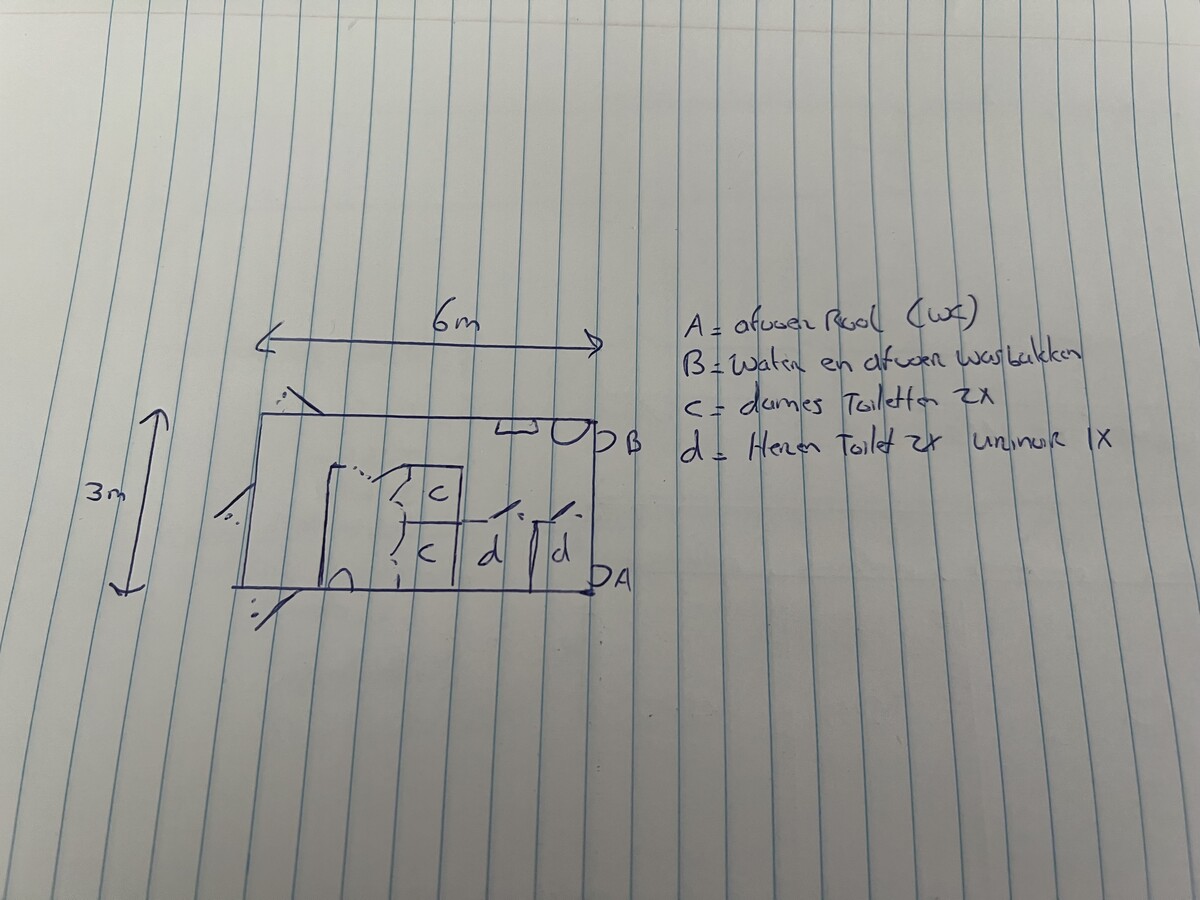 6m
A = afvoer Riool (wc)
B = Water en afvoer wasbakken
C = dames Toiletten 2x
d = Heren Toilet 2x urinoir 1x
3m
B
C
C
d
d
A